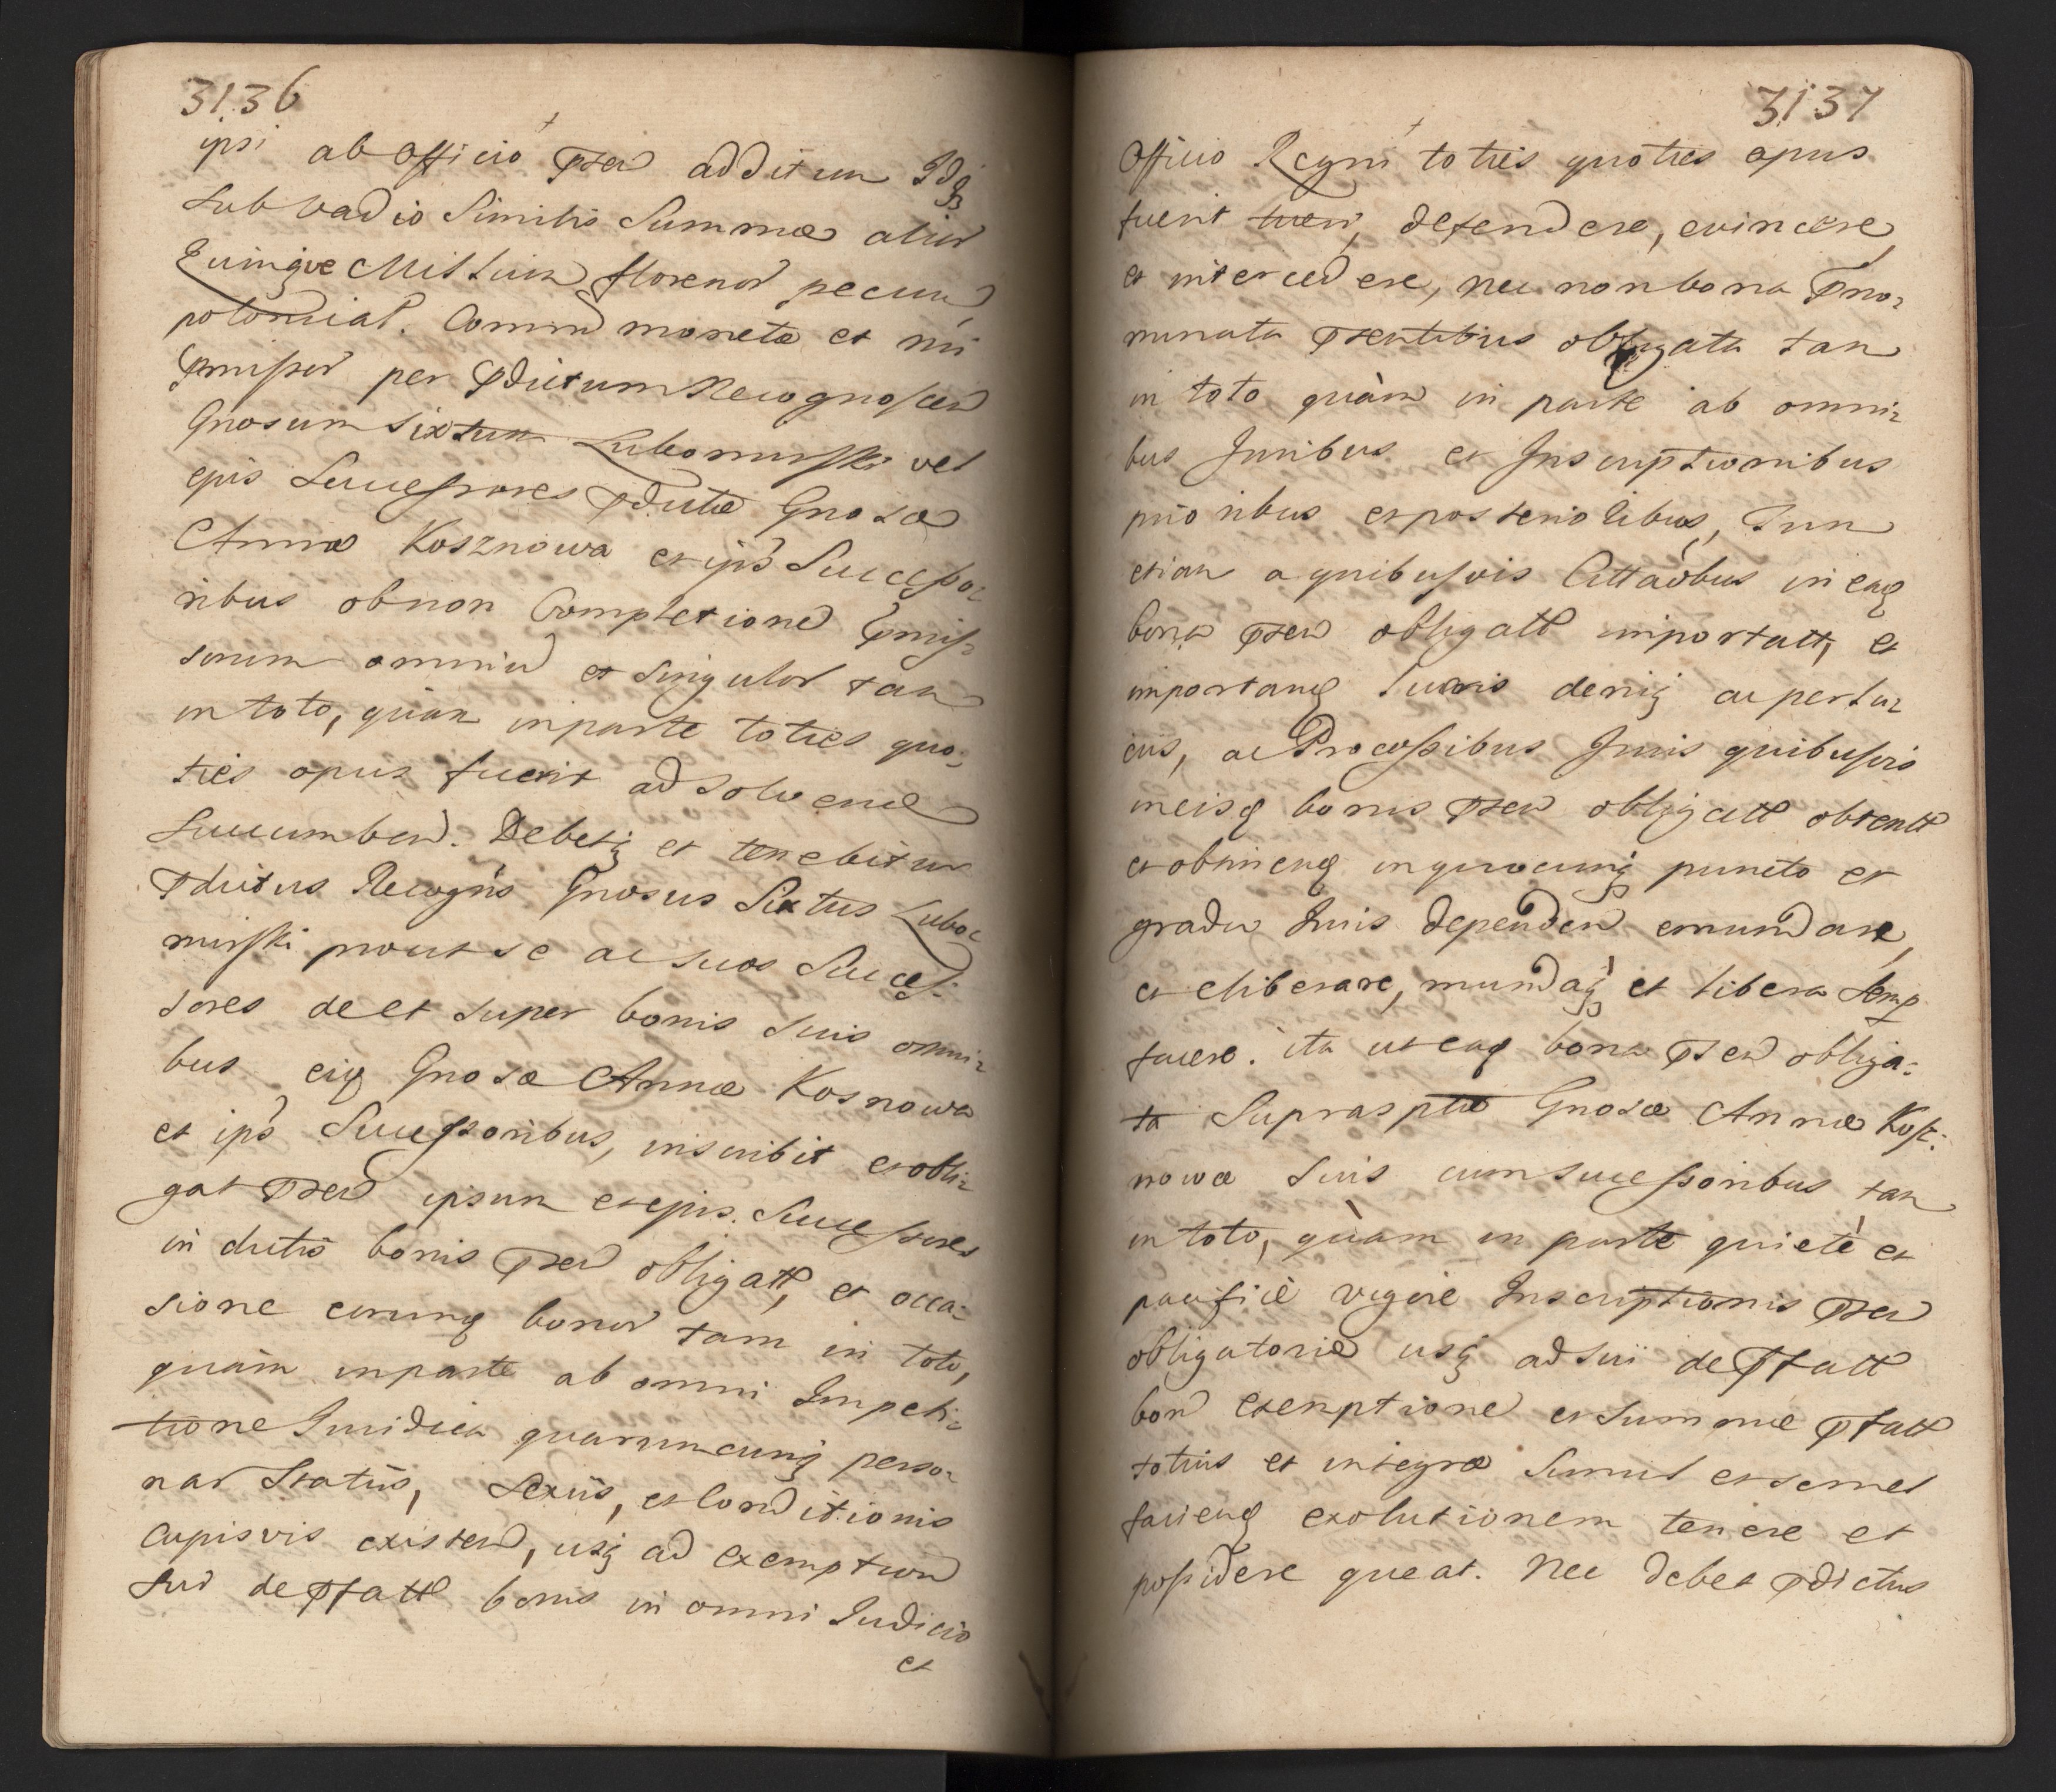 3136
ipsi ab officio pñter additum Idq
sub vadio similis summæ aliorum
Quinque Millium florenor pecun
polonical. Commi monetæ et nri
pmissor per pdictum Recognoscen
Gnosum Sixtum Lubomirski vel
ejus Successores pdictæ Gnosæ
Annæ Kosznowa et ips Successo-
ribus ob non Completioned pmis-
sorum omniu et singulor tam
in toto, quàm in parte toties quo-
ties opus fuerit ad solvend
succumben. Debetq et tenebitur
pdictus Recogns Gnosus Sixtus Lubo-
mirski prout se ac suos Succes-
sores de et super bonis suis omni-
bus eiq Gnosæ Annæ Kosnowa
et ips Successoribus, inscribit et obli-
gat pñter ipsam et ejus Successores
in dictis bonis pñter obligatt, et occa-
sione eorunq bonor tam in toto,
quàm in parte ab omni Impeti-
tione Juridica quaruncunq perso-
nar Status, Sexûs, et Conditionis
Cujusvis existen, usq ad exemption
sui de pfatt bonis in omni Judicio
et
3137
Officio Regni toties quoties opus
fuerit tueri, defendere, evincere
et intercedere, nec non bona pno-
minata pñtentibus obligata tam
in toto quàm in parte ab omni-
bus Juribus et Inscriptionibus
prioribus et posterioribus, Tum
etiam a quibusvis Cittaõbus in eaq
bona pñter obligatt importatt, et
importanq Lucris deniq ac perlu-
cris, ac Processibus Juris quibusvis
in eisq bonis pñter obligatt obtentt
et obtinenq in quocunq puncto et
gradu Juris dependen emundare,
et eliberare, mundaq et libera semp
facere. ita ut eaq bona pñter obliga-
ta Suprasptæ Gnosæ Annæ Kosz-
nowæ suis cum successoribus tam
in toto, quàm in parte quietè et
pacificè vigore Inscriptionis pñter
obligatoriæ usq ad sui de pfatt
bon exemptione et summæ pfatt
totius et integræ simul et semel
facienq exolutionem tenere et
possidere queat. Nec debet pdictus